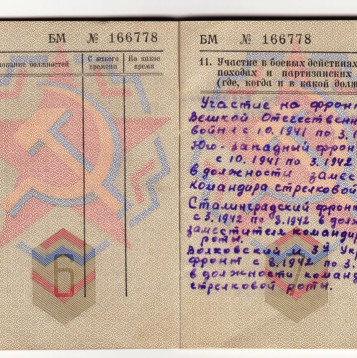 БМ № 166778
нование должностей
С какого времени
По какое время
6
БМ № 166778
11. Участие в боевых действиях
походах и партизанских
(где, когда и в какой долж
Участие на фрон
Отечественн
войны с 10.1941 по 3.1
Юго-западный фронт
с 10.1941 по 3.1942
в должности замес
командира стрелковой
Сталинградский фронт
с 3.1942 по 8.1942 в дол
заместитель командир
роты.
Волховский и 3й Укр
фронт с 8.1942 по 3.
в должности команд
стрелковой роты.
7